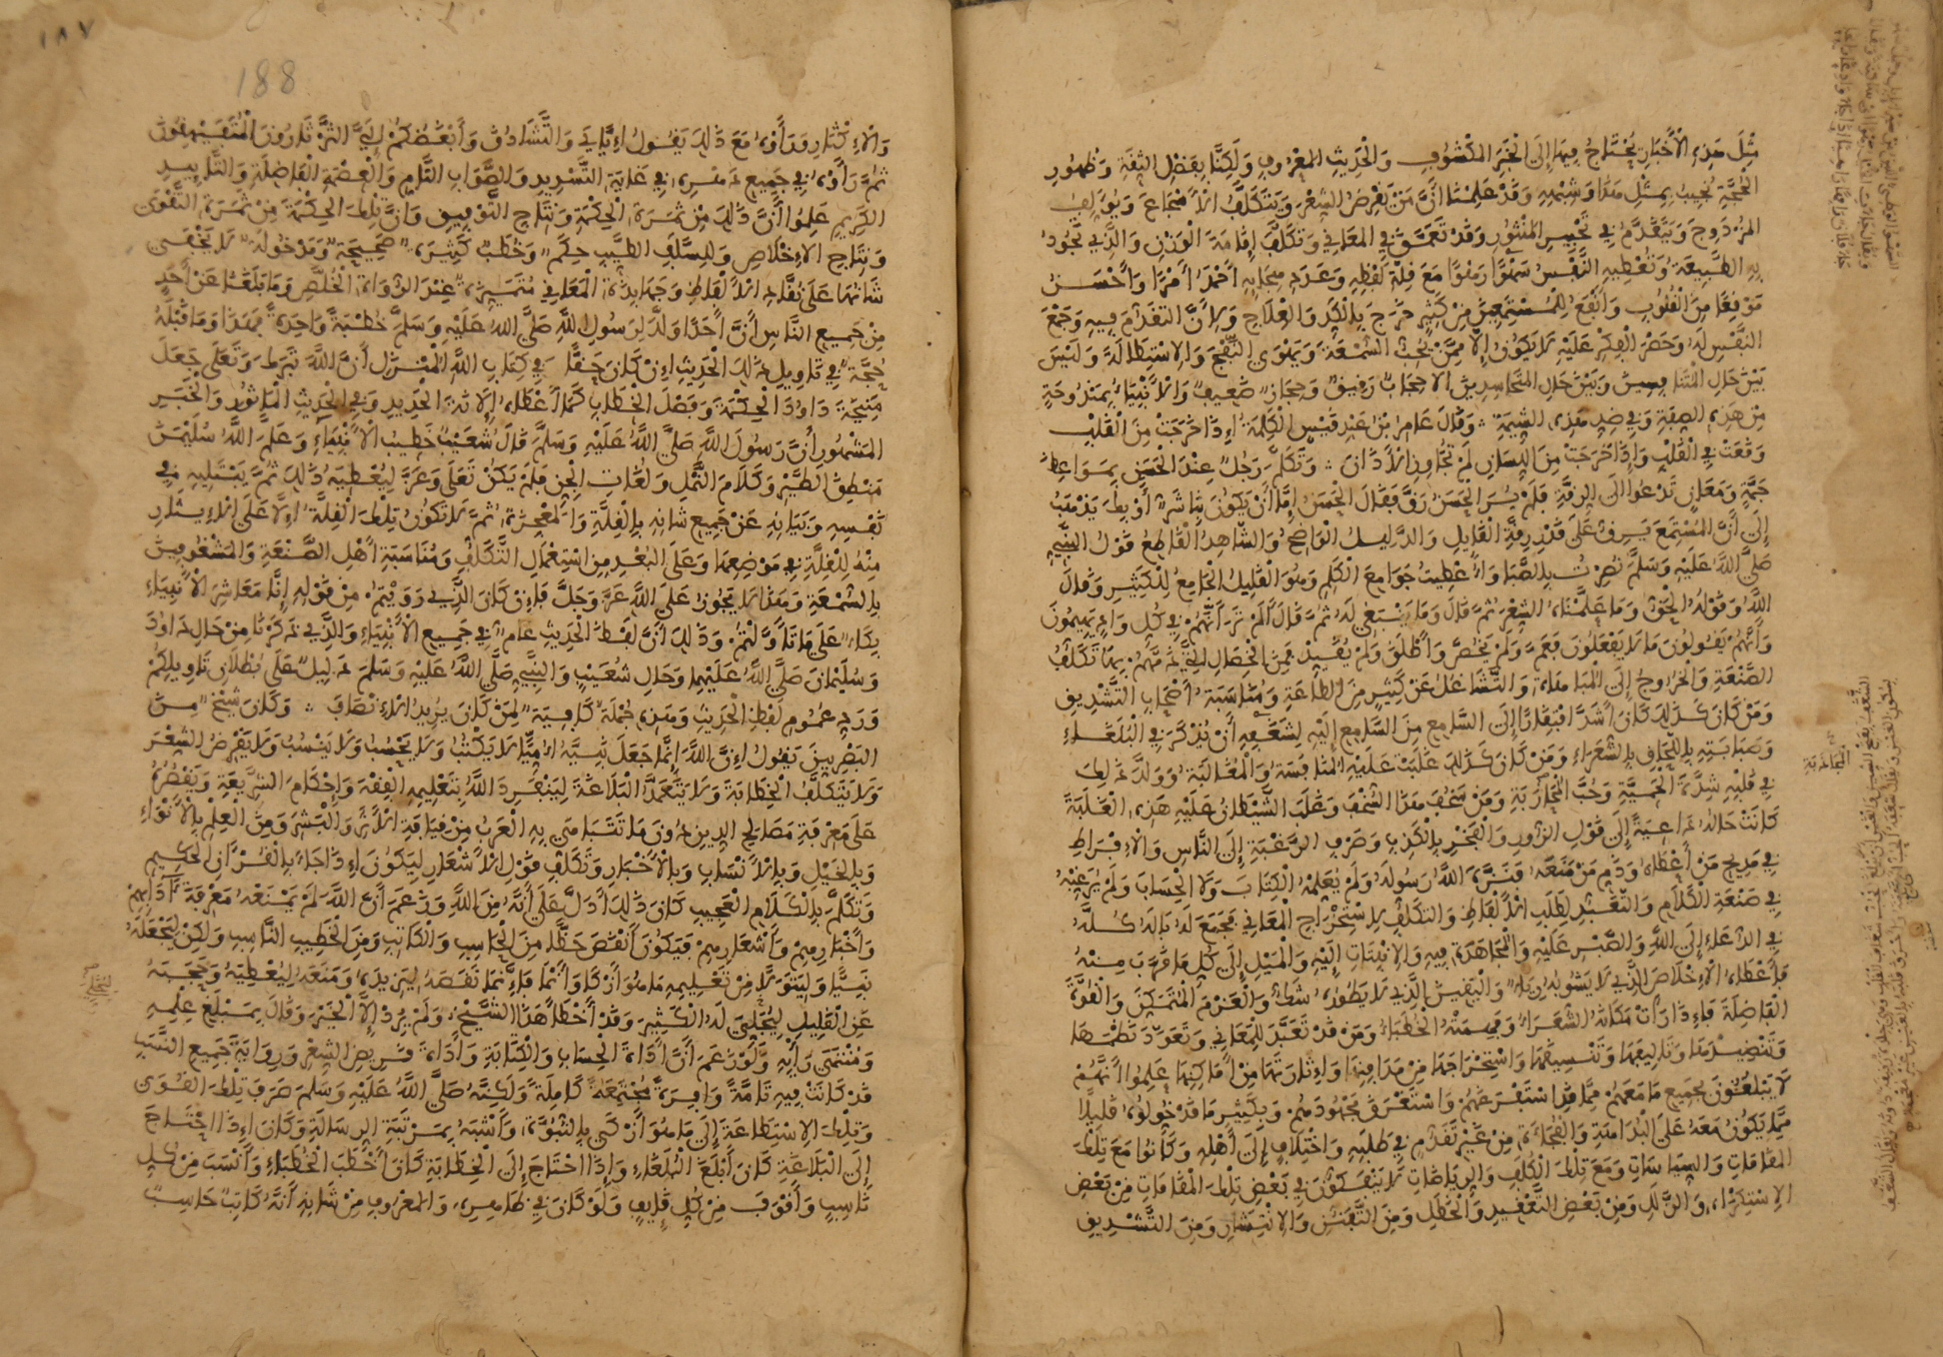 مِثْلَ هَذِهِ الْأَخْبَارِ يُحْتَاجُ فِيهَا إِلَى الْخَبَرِ الْمَكْشُوفِ وَالْحَدِيثِ الْمَعْرُوفِ وَلَكِنَّا بِفَضْلِ الثِّقَةِ وَظُهُورِ
الْحُجَّةِ نُجِيبُ بِمِثْلِ هَذَا وَشِبْهِهِ وَقَدْ عَلِمْنَا أَنَّ مَنْ يَقْرِضُ الشِّعْرَ وَيَتَكَلَّفُ الْأَسْجَاعَ وَيُؤَلِّفُ
الْمُزْدَوِجَ وَيَتَقَدَّمُ فِي تَحْبِيرِ الْمَنْثُورِ وَقَدْ تَعَمَّقَ فِي الْمَعَانِي وَتَكَلَّفَ إِقَامَةَ الْوَزْنِ وَالَّذِي تَجُودُ
بِهِ الطَّبِيعَةُ وَتُعْطِيهِ النَّفْسُ سَهْوًا رَهْوًا مَعَ قِلَّةِ لَفْظِهِ وَعَدَدِ هِجَائِهِ أَحْمَدُ أَمْرًا وَأَحْسَنُ
مَوْقِعًا مِنَ الْقُلُوبِ وَأَنْفَعُ لِلْمُسْتَمِعِينَ مِنْ كَثِيرٍ خَرَجَ بِالْكَدِّ وَالْعِلَاجِ وَلِأَنَّ التَّقَدُّمَ فِيهِ وَجَمْعَ
النَّفْسِ لَهُ وَحَصْرَ الْفِكْرِ عَلَيْهِ لَا يَكُونُ إِلَّا مِمَّنْ يُحِبُّ السُّمْعَةَ وَيَهْوَى النَّفْجَ وَالِاسْتِطَالَةَ وَلَيْسَ
بَيْنَ حَالِ الْمُتَنَافِسِينَ وَبَيْنَ حَالِ الْمُتَحَاسِدِينَ إِلَّا حِجَابٌ رَقِيقٌ وَحِجَازٌ ضَعِيفٌ وَالْأَنْبِيَاءُ بِمَنْدُوحَةٍ
مِنْ هَذِهِ الصِّفَةِ وَفِي ضِدِّ هَذِهِ الشِّيمَةِ ∴ وَقَالَ عَامِرُ بْنُ عَبْدِ قَيْسٍ الْكَلِمَةُ إِذَا خَرَجَتْ مِنَ الْقَلْبِ
وَقَعَتْ فِي الْقَلْبِ وَإِذَا خَرَجَتْ مِنَ اللِّسَانِ لَمْ تُجَاوِزِ الْأَذَانَ ∴ وَتَكَلَّمَ رَجُلٌ عِنْدَ الْحَسَنِ بِمَوَاعِظَ
جَمَّةٍ وَمَعَانٍ تَدْعُوا إِلَى الرِّقَّةِ فَلَمْ يُرَ الْحَسَنُ رَقَّ فَقَالَ الْحَسَنُ إِمَّا أَنْ يَكُونَ بِنَا شَرٌّ أَوْ بِكَ يَذْهَبُ
إِلَى أَنَّ الْمُسْتَمِعَ يَرِقُّ عَلَى قَدْرِ رِقَّةِ الْقَائِلِ وَالدَّلِيلُ الْوَاضِحُ وَالشَّاهِدُ الْقَاطِعُ قَوْلُ النَّبِيِّ
صَلَّى اللَّهُ عَلَيْهِ وَسَلَّمَ نُصِرْتُ بِالصَّبَا وَأُعْطِيتُ جَوَامِعَ الْكَلِمِ وَهُوَ الْقَلِيلُ الْجَامِعُ لِلْكَثِيرِ وَقَالَ
اللَّهُ وَقَوْلُهُ الْحَقُّ وَمَا عَلَّمْنَاهُ الشِّعْرَ ثُمَّ قَالَ وَمَا يَنْبَغِي لَهُ ثُمَّ قَالَ أَلَمْ تَرَ أَنَّهُمْ فِي كُلِّ وَادٍ يَهِيمُونَ
وَأَنَّهُمْ يَقُولُونَ مَا لَا يَفْعَلُونَ فَعَمَّ وَلَمْ يَخُصَّ وَأَطْلَقَ وَلَمْ يُقَيِّدْ فَمِنَ الْخِصَالِ الَّتِي ذَمَّهُمْ بِهَا تَكَلُّفُ
الصَّنْعَةِ وَالْخُرُوجُ إِلَى الْمُبَاهَاةِ وَالتَّشَاغُلُ عَنْ كَثِيرٍ مِنَ الطَّاعَةِ وَمُنَاسَبَةُ أَصْحَابِ التَّشْدِيقِ
وَمَنْ كَانَ كَذَلِكَ كَانَ أَشَدَّ افْتِقَارًا إِلَى السَّامِعِ مِنَ السَّامِعِ إِلَيْهِ لِشَغَفِهِ أَنْ يُذْكَرَ فِي الْبُلَغَاءِ
وَصَبَابَتِهِ بِاللَّحَاقِ بِالشُّعَرَاءِ وَمَنْ كَانَ كَذَلِكَ غَلَبَتْ عَلَيْهِ الْمُنَافَسَةُ وَالْمُغَالَبَةُ وَوَلَّدَ ذَلِكَ
فِي قَلْبِهِ شِدَّةَ الْحَمِيَّةِ وَحُبَّ الْمُحَارَبَةِ وَمَنْ سَخُفَ هَذَا السُّخْفَ وَغَلَبَ الشَّيْطَانُ عَلَيْهِ هَذِهِ الْغَلَبَةَ
كَانَتْ حَالُهُ دَاعِيَةً إِلَى قَوْلِ الزُّورِ وَالْفَخْرِ بِالْكَذِبِ وَصَرْفِ الرَّغْبَةِ إِلَى النَّاسِ وَالْإِفْرَاطِ
فِي مَدِيحِ مَنْ أَعْطَاهُ وَذَمِّ مَنْ مَنَعَهُ فَنَزَّهَ اللَّهُ رَسُولَهُ وَلَمْ يُعَلِّمْهُ الْكِتَابَ وَلَا الْحِسَابَ وَلَمْ يُرَغِّبْهُ
فِي صَنْعَةِ الْكَلَامِ وَالتَّعْبِيرِ لِطَلَبِ الْأَلْفَاظِ وَالتَّكَلُّفِ لِاسْتِخْرَاجِ الْمَعَانِي فَجَمَعَ لَهُ بَالَهُ كُلَّهُ
فِي الدُّعَاءِ إِلَى اللَّهِ وَالصَّبْرِ عَلَيْهِ وَالْمُجَاهَدَةِ فِيهِ وَالِانْبِتَاتِ إِلَيْهِ وَالْمَيْلِ إِلَى كُلِّ مَا قَرَّبَ مِنْهُ
فَأَعْطَاهُ الْإِخْلَاصَ الَّذِي لَا يَشُوبُهُ رِيَاءٌ وَالْيَقِينَ الَّذِي لَا يَطُورُهُ شَكٌّ وَالْعَزْمَ الْمُتَمَكِّنَ وَالْقُوَّةَ
الْفَاضِلَةَ فَإِذَا رَأَتْ مَكَانَهُ الشُّعَرَاءُ وَفَهِمَتْهُ الْخُطَبَاءُ وَمَنْ قَدْ تَعَبَّدَ لِلْمَعَانِي وَتَعَوَّدَ نَظْمَهَا
وَتَنْضِيدَهَا وَتَأْلِيفَهَا وَتَنْسِيقَهَا وَاسْتِخْرَاجَهَا مِنْ مَدَافِنِهَا وَإِثَارَتَهَا مِنْ أَمَاكِنِهَا عَلِمُوا أَنَّهُمْ
لَا يَبْلُغُونَ بِجَمِيعِ مَا مَعَهُمْ مِمَّا قَدِ اسْتَفْرَغَهُمْ وَاسْتَغْرَقَ مَجْهُودَهُمْ وَبِكَثِيرِ مَا قَدْ خُوِّلُوهُ قَلِيلًا
مِمَّا يَكُونُ مَعَهُ عَلَى الْبَدَاهَةِ وَالْفُجَاءَةِ مِنْ غَيْرِ تَقَدُّمٍ فِي طَلَبِهِ وَاخْتِلَافٍ إِلَى أَهْلِهِ وَكَانُوا مَعَ تِلْكَ
الْمَقَامَاتِ وَالسِّيَاسَاتِ وَمَعَ تِلْكَ الْكُلَفِ وَالرِّيَاضَاتِ لَا يَنْفَكُّونَ فِي بَعْضِ تِلْكَ الْمَقَامَاتِ مِنْ بَعْضِ
الِاسْتِكْرَاهِ وَالزَّلَلِ وَمِنْ بَعْضِ التَّعْقِيدِ وَالْخَطَلِ وَمِنَ التَّفَنُّنِ وَالِانْتِشَارِ وَمِنَ التَّشْدِيقِ
١٨٧
188
وَالْإِكْثَارِ وَرَأَوْهُ مَعَ ذَلِكَ يَقُولُ إِيَّايَ وَالتَّشَادُقَ وَأَبْغَضُكُمْ إِلَيَّ الثَّرْثَارُونَ الْمُتَفَيْهِقُونَ
ثُمَّ رَأَوْهُ فِي جَمِيعِ دَهْرِهِ فِي غَايَةِ التَّسْدِيدِ وَالصَّوَابِ التَّامِّ وَالْعِصْمَةِ الْفَاضِلَةِ وَالتَّأْيِيدِ
الْكَرِيمِ عَلِمُوا أَنَّ ذَلِكَ مِنْ ثَمَرَةِ الْحِكْمَةِ وَنِتَاجِ التَّوْفِيقِ وَأَنَّ تِلْكَ الْحِكْمَةَ مِنْ ثَمَرَةِ التَّقْوَى
وَنِتَاجِ الْإِخْلَاصِ وَلِلسَّلَفِ الطَّيِّبِ حِكَمٌ وَخُطَبٌ كَثِيرَةٌ صَحِيحَةٌ وَمَدْخُولَةٌ لَا يَخْفَى
شَأْنُهَا عَلَى نُقَّادِ الْأَلْفَاظِ وَجَهَابِذَةِ الْمَعَانِي مُتَمَيِّزَةٌ عِنْدَ الرُّوَاةِ الْخُلَّصِ وَمَا بَلَغَنَا عَنْ أَحَدٍ
مِنْ جَمِيعِ النَّاسِ أَنَّ أَحَدًا وَلَّدَ لِرَسُولِ اللَّهِ صَلَّى اللَّهُ عَلَيْهِ وَسَلَّمَ خُطْبَةً وَاحِدَةً فَهَذَا وَمَا قَبْلَهُ
حُجَّةٌ فِي تَأْوِيلِ ذَلِكَ الْحَدِيثِ إِنْ كَانَ حَقًّا وَفِي كِتَابِ اللَّهِ الْمُنَزَّلِ أَنَّ اللَّهَ تَبَارَكَ وَتَعَلَى جَعَلَ
مَنِيحَةَ دَاوُدَ الْحِكْمَةَ وَفَصْلَ الْخِطَابِ كَمَا أَعْطَاهُ إِلَانَةَ الْحَدِيدِ وَفِي الْحَدِيثِ الْمَأْثُورِ وَالْخَبَرِ
الْمَشْهُورِ أَنَّ رَسُولَ اللَّهِ صَلَّى اللَّهُ عَلَيْهِ وَسَلَّمَ قَالَ شُعَيْبٌ خَطِيبُ الْأَنْبِيَاءِ وَعَلَّمَ اللَّهُ سُلَيْمَنَ
مَنْطِقَ الطَّيْرِ وَكَلَامَ النَّمْلِ وَلُغَاتِ الْجِنِّ فَلَمْ يَكُنْ تَعَلَى وَعَزَّ لِيُعْطِيَهُ ذَلِكَ ثُمَّ يَبْتَلِيهِ فِي
نَفْسِهِ وَبَيَانِهِ عَنْ جَمِيعِ شَأْنِهِ بِالْقِلَّةِ وَالْمَعْجِزَةِ ثُمَّ لَا تَكُونُ تِلْكَ الْقِلَّةُ إِلَّا عَلَى الْإِيثَارِ
مِنْهُ لِلْقِلَّةِ فِي مَوْضِعِهَا وَعَلَى الْبُعْدِ مِنِ اسْتِعْمَالِ التَّكَلُّفِ وَمُنَاسَبَةِ أَهْلِ الصَّنْعَةِ وَالْمَشْغُوفِينَ
بِالسُّمْعَةِ وَهَذَا لَا يَجُوزُ عَلَى اللَّهِ عَزَّ وَجَلَّ فَإِنْ كَانَ الَّذِي رَوَيْتُمْ مِنْ قَوْلِهِ إِنَّا مَعَاشِرَ الْأَنْبِيَاءِ
بِكَاءٌ عَلَى مَا تَأَوَّلْتُمْ وَذَلِكَ أَنَّ لَفْظَ الْحَدِيثِ عَامٌّ فِي جَمِيعِ الْأَنْبِيَاءِ وَالَّذِي ذَكَرْنَا مِنْ حَالِ دَاوُدَ
وَسُلَيْمَانَ صَلَّى اللَّهُ عَلَيْهِمَا وَحَالِ شُعَيْبٍ وَالنَّبِيِّ صَلَّى اللَّهُ عَلَيْهِ وَسَلَّمَ دَلِيلٌ عَلَى بُطْلَانِ تَأْوِيلِكُمْ
وَرَدِّ عُمُومِ لَفْظِ الْحَدِيثِ وَهَذِهِ جُمْلَةٌ كَافِيَةٌ لِمَنْ كَانَ يُرِيدُ الْإِنْصَافَ ∴ وَكَانَ شَيْخٌ مِنَ
الْبَصْرِيِّينَ يَقُولُ إِنَّ اللَّهَ إِنَّمَا جَعَلَ نَبِيَّهُ أُمِّيًّا لَا يَكْتُبُ وَلَا يَحْسُبُ وَلَا يَنْسُبُ وَلَا يَقْرِضُ الشِّعْرَ
وَلَا يَتَكَلَّفُ الْخَطَابَةَ وَلَا يَتَعَمَّدُ الْبَلَاغَةَ لِيَنْفَرِدَ اللَّهُ بِتَعْلِيمِهِ الْفِقْهَ وَإِحْكَامَ الشَّرِيعَةِ وَيَقْصُرَهُ
عَلَى مَعْرِفَةِ مَصَالِحِ الدِّينِ دُونَ مَا تَتَبَاهَى بِهِ الْعَرَبُ مِنْ قِيَافَةِ الْأَثَرِ وَالْبَشَرِ وَمِنَ الْعِلْمِ بِالْأَنْوَاءِ
وَبِالْخَيْلِ وَبِالْأَنْسَابِ وَبِالْأَخْبَارِ وَتَكَلُّفِ قَوْلِ الْأَشْعَارِ لِيَكُونَ إِذَا جَاءَ بِالْقُرْآنِ الْحَكِيمِ
وَتَكَلَّمَ بِالْكَلَامِ الْعَجِيبِ كَانَ ذَلِكَ أَدَلَّ عَلَى أَنَّهُ مِنَ اللَّهِ وَزَعَمَ أَنَّ اللَّهَ لَمْ يَمْنَعْهُ مَعْرِفَةَ آدَابِهِمْ
وَأَخْبَارِهِمْ وَأَشْعَارِهِمْ لِيَكُونَ أَنْقَصَ حَظًّا مِنَ الْحَاسِبِ وَالْكَاتِبِ وَمِنَ الْخَطِيبِ النَّاسِبِ وَلَكِنْ لِيَجْعَلَهُ
نَبِيًّا وَلِيَتَوَلَّى مِنْ تَعْلِيمِهِ مَا هُوَ أَزْكَا وَأَنْمَا فَإِنَّمَا نَقَصَهُ لِيَزِيدَهُ وَمَنَعَهُ لِيُعْطِيَهُ وَحَجَبَهُ
عَنِ الْقَلِيلِ لِيُجَلِّيَ لَهُ الْكَثِيرَ وَقَدْ أَخْطَأَ هَذَا الشَّيْخُ وَلَمْ يُرِدْ إِلَّا الْخَيْرَ وَقَالَ بِمَبْلَغِ عِلْمِهِ
وَمُنْتَهَى رَأْيِهِ وَلَوْ زَعَمَ أَنَّ أَدَاةَ الْحِسَابِ وَالْكِتَابَةِ وَأَدَاةَ قَرِيضِ الشِّعْرِ وَرِوَايَةِ جَمِيعِ النَّسَبِ
قَدْ كَانَتْ فِيهِ تَامَّةً وَافِرَةً مُجْتَمِعَةً كَامِلَةً وَلَكِنَّهُ صَلَّى اللَّهُ عَلَيْهِ وَسَلَّمَ صَرَفَ تِلْكَ الْقُوَى
وَتِلْكَ الِاسْتِطَاعَةَ إِلَى مَا هُوَ أَزْكَى بِالنُّبُوَّةِ وَأَشْبَهُ بِمَرْتَبَةِ الرِّسَالَةِ وَكَانَ إِذَا احْتَاجَ
إِلَى الْبَلَاغَةِ كَانَ أَبْلَغَ الْبُلَغَاءِ وَإِذَا احْتَاجَ إِلَى الْخَطَابَةِ كَانَ أَخْطَبَ الْخُطَبَاءِ وَأَنْسَبَ مِنْ كُلِّ
نَاسِبٍ وَأَقْوَفَ مِنْ كُلِّ قَايِفٍ وَلَوْ كَانَ فِي ظَاهِرِهِ وَالْمَعْرُوفِ مِنْ شَأْنِهِ أَنَّهُ كَاتِبٌ حَاسِبٌ